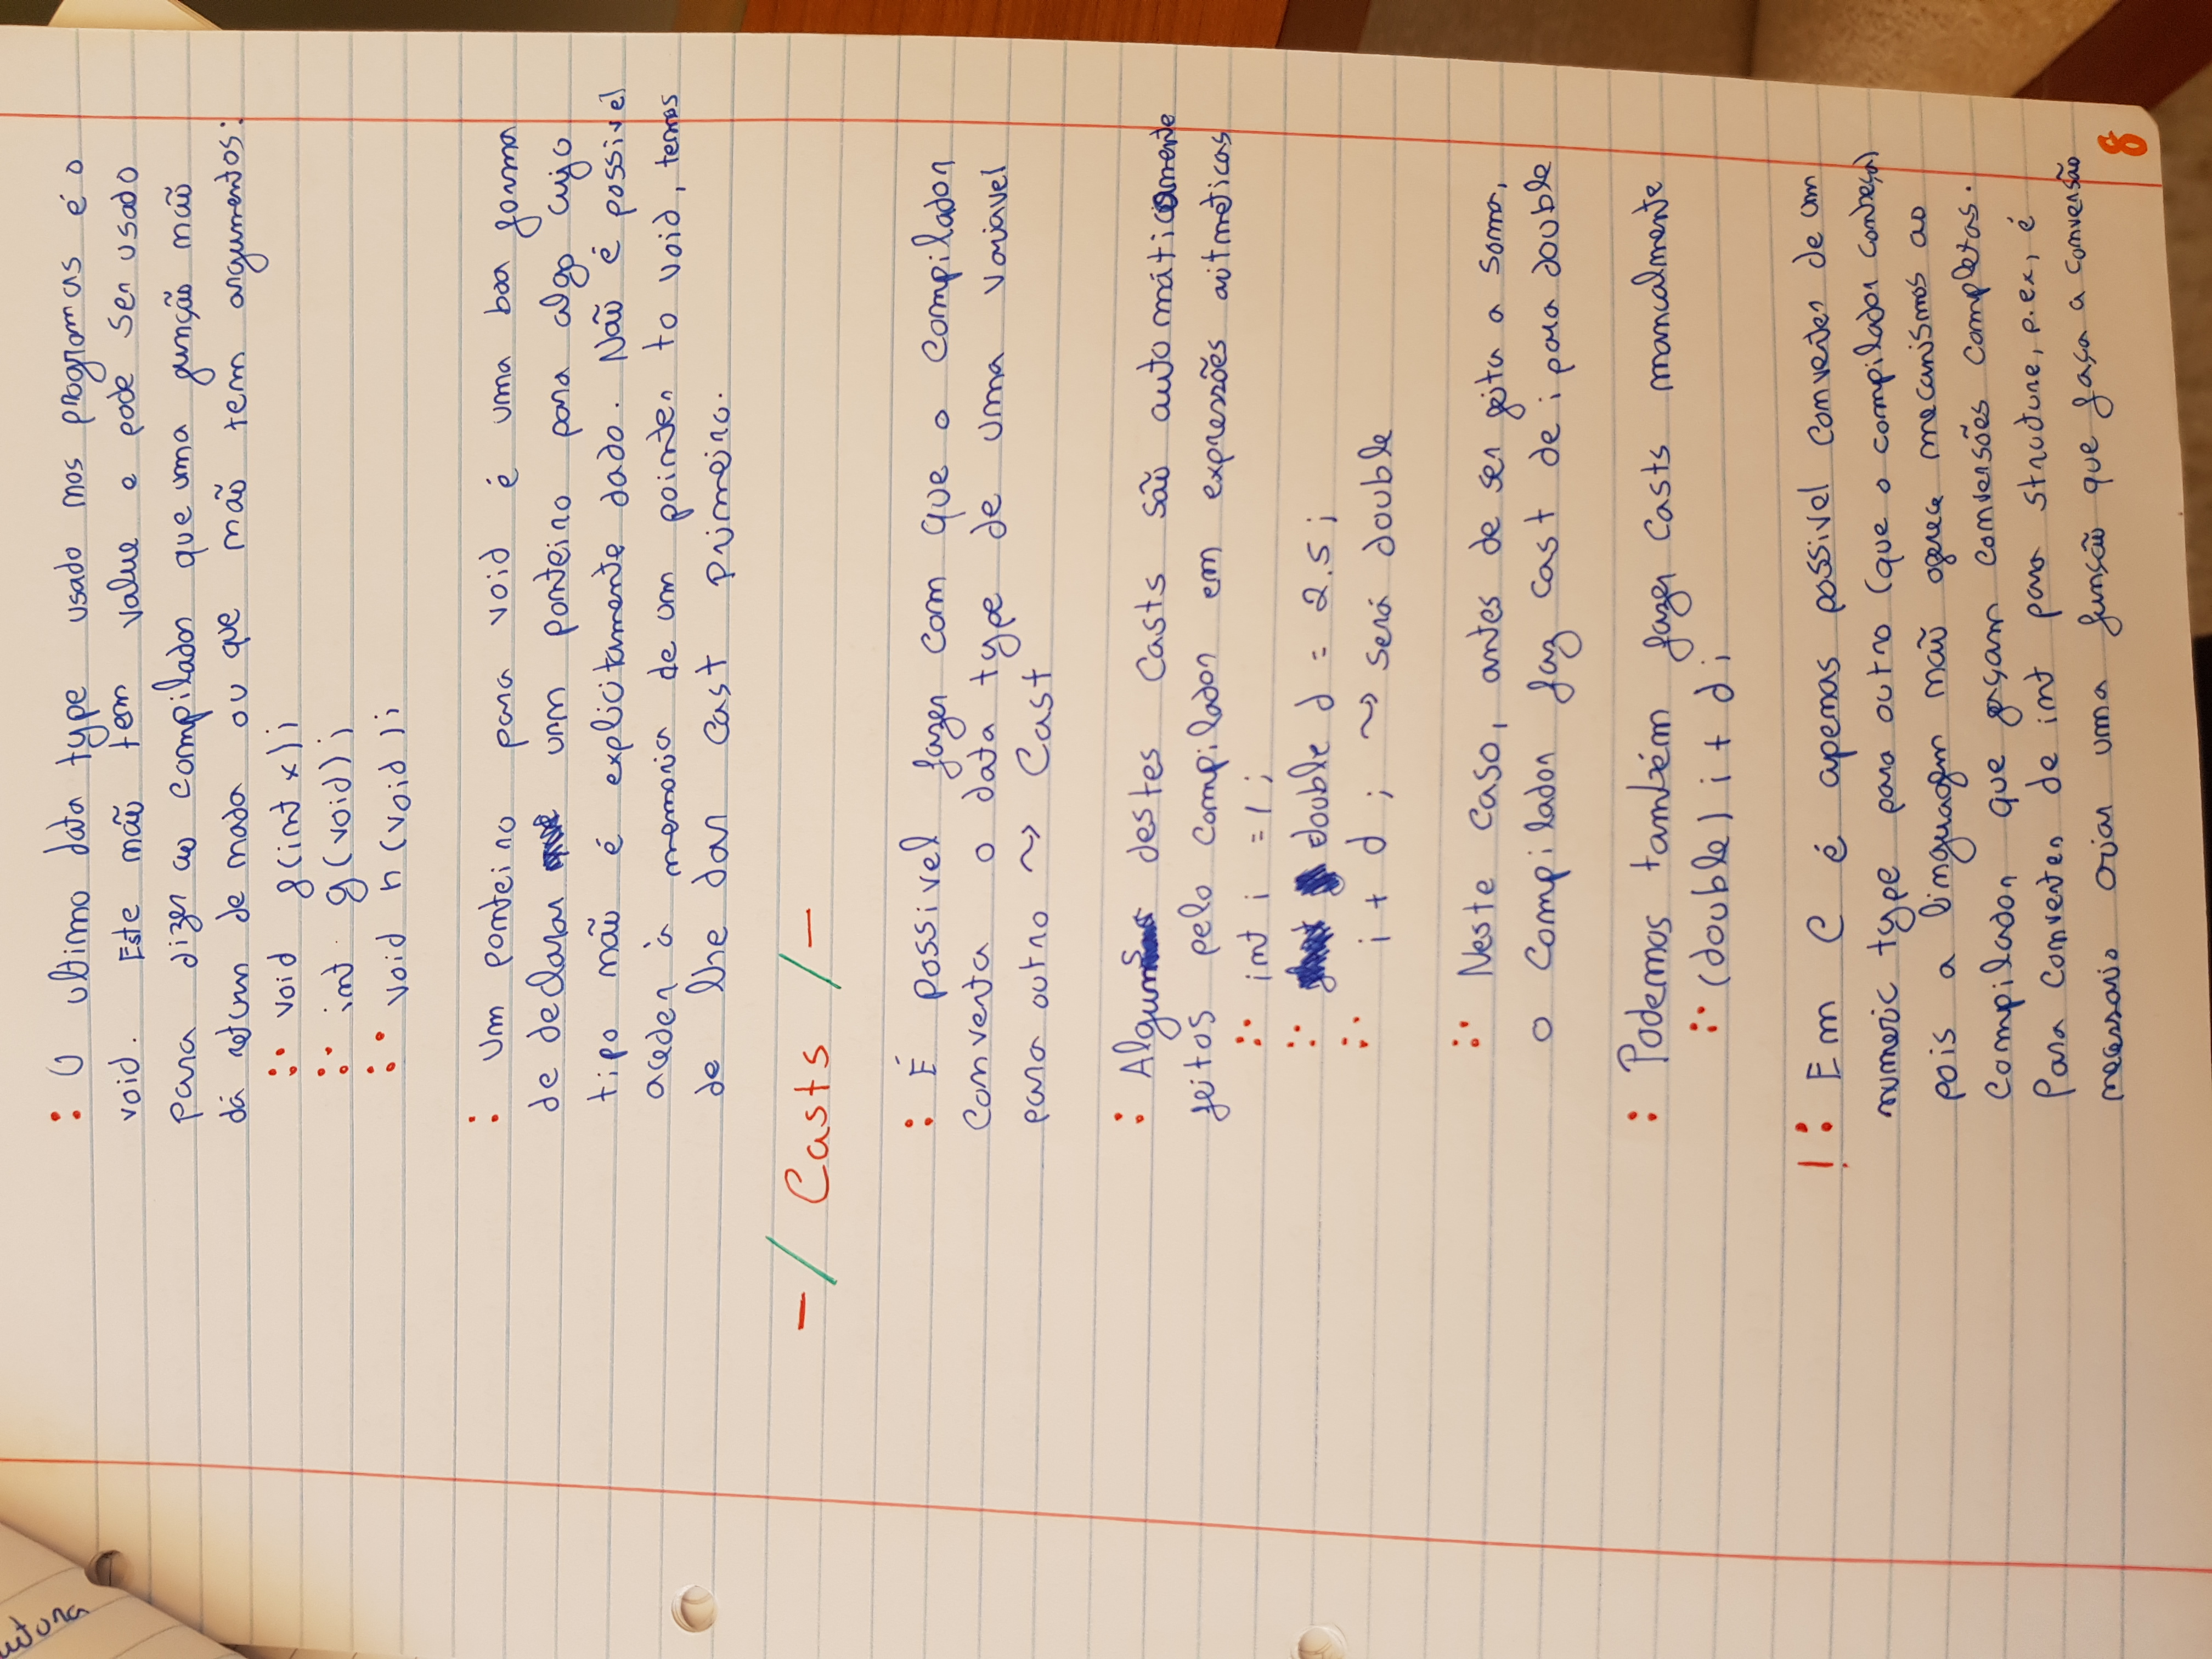 : O ultimo data type usado nos programas é o
void. Este não tem value e pode ser usado
para dizer ao compilador que uma função não
dá return de nada ou que não tem argumentos:
void f(int x);
int g(void);
void h(void);
: Um ponteiro para void é uma boa forma
de declarar um ponteiro para algo cujo
tipo não é explicitamente dado. Não é possivel
aceder à memoria de um pointer to void, temos
de lhe dar cast primeiro.
-/ Casts /-
: É possivel fazer com que o compilador
converta o data type de uma variavel
para outro ~> Cast
: Alguns destes casts são automáticamente
feitos pelo compilador em expressões aritmeticas
int i = 1;
double d = 2.5;
i + d; ~> será double
Neste caso, antes de ser feita a soma,
o compilador faz cast de i para double
: Podemos também fazer casts manualmente
(double) i + d;
!: Em C é apenas possivel converter de um
numeric type para outro (que o compilador conheça)
pois a linguagem não oferece mecanismos ao
compilador que façam conversões completas.
Para converter de int para structure, p.ex, é
necessario criar uma função que faça a conversão
8